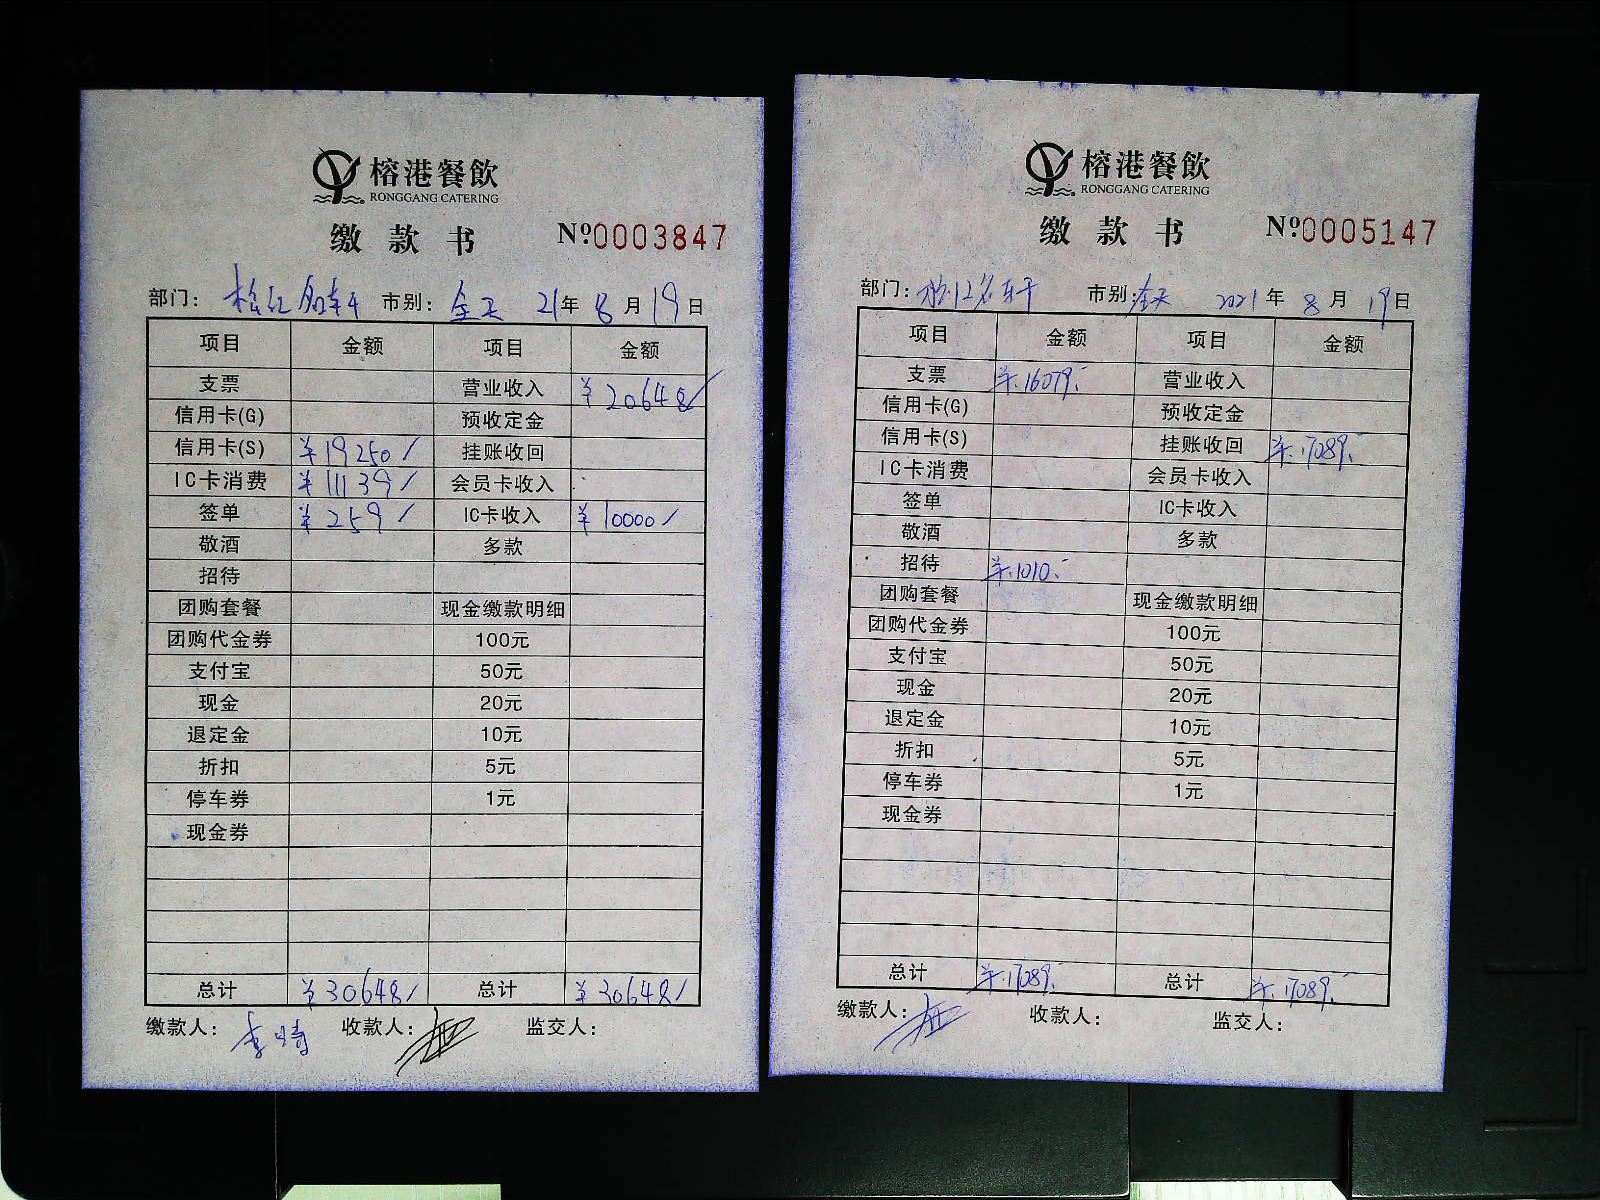 榕港餐飲
RONGGANG CATERING
缴款书 №0003847
部门: 松江名轩 市别: 全天 21年8月19日
项目 金额 项目 金额
支票 营业收入 ¥20648/
信用卡(G) 预收定金
信用卡(S) ¥19250/ 挂账收回
IC卡消费 ¥11139/ 会员卡收入
签单 ¥259/ IC卡收入 ¥10000/
敬酒 多款
招待
团购套餐 现金缴款明细
团购代金券 100元
支付宝 50元
现金 20元
退定金 10元
折扣 5元
停车券 1元
现金券
总计 ¥30648/ 总计 ¥30648/
缴款人: 李晴 收款人: 监交人:
榕港餐飲
RONGGANG CATERING
缴款书 №0005147
部门: 松江名轩 市别: 全天 2021年8月19日
项目 金额 项目 金额
支票 ¥.16079.- 营业收入
信用卡(G) 预收定金
信用卡(S) 挂账收回 ¥.17089.-
IC卡消费 会员卡收入
签单 IC卡收入
敬酒 多款
招待 ¥.1010.-
团购套餐 现金缴款明细
团购代金券 100元
支付宝 50元
现金 20元
退定金 10元
折扣 5元
停车券 1元
现金券
总计 ¥.17089.- 总计 ¥.17089.-
缴款人: 收款人: 监交人: